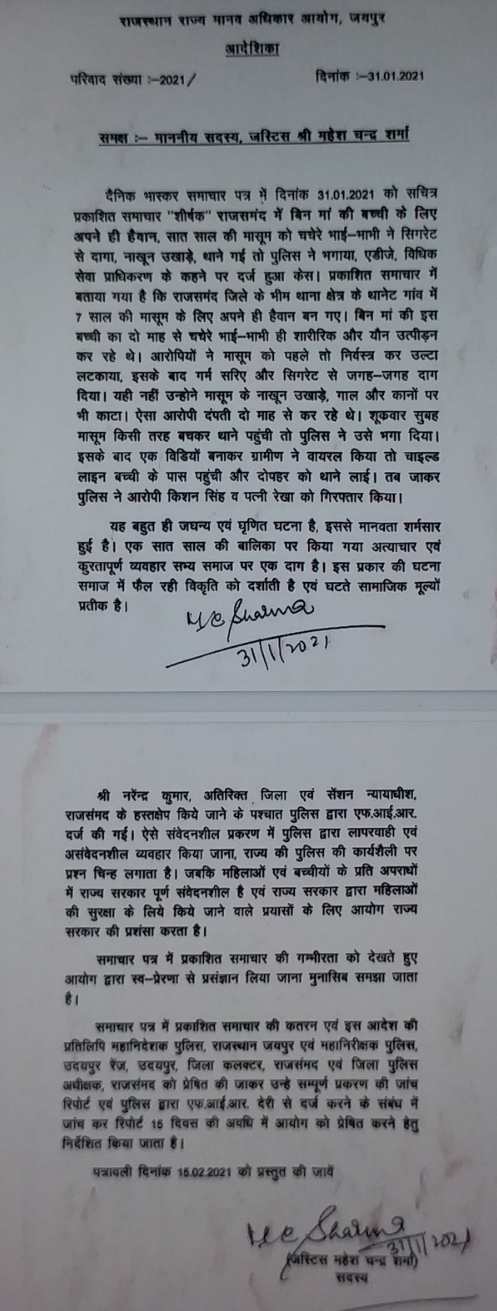 राजस्थान राज्य मानव अधिकार आयोग, जयपुर
आदेशिका
परिवाद संख्या :–2021/
दिनांक :–31.01.2021
समक्ष :– माननीय सदस्य, जस्टिस श्री महेश चन्द्र शर्मा
दैनिक भास्कर समाचार पत्र में दिनांक 31.01.2021 को सचित्र
प्रकाशित समाचार "शीर्षक" राजसमंद में बिन मां की बच्ची के लिए
अपने ही हैवान, सात साल की मासूम को चचेरे भाई–भाभी ने सिगरेट
से दागा, नाखून उखाड़े, थाने गई तो पुलिस ने भगाया, एडीजे, विधिक
सेवा प्राधिकरण के कहने पर दर्ज हुआ केस। प्रकाशित समाचार में
बताया गया है कि राजसमंद जिले के भीम थाना क्षेत्र के थानेट गांव में
7 साल की मासूम के लिए अपने ही हैवान बन गए। बिन मां की इस
बच्ची का दो माह से चचेरे भाई–भाभी ही शारीरिक और यौन उत्पीड़न
कर रहे थे। आरोपियों ने मासूम को पहले तो निर्वस्त्र कर उल्टा
लटकाया, इसके बाद गर्म सरिए और सिगरेट से जगह–जगह दाग
दिया। यही नहीं उन्होने मासूम के नाखून उखाड़े, गाल और कानों पर
भी काटा। ऐसा आरोपी दंपती दो माह से कर रहे थे। शूकवार सुबह
मासूम किसी तरह बचकर थाने पहुंची तो पुलिस ने उसे भगा दिया।
इसके बाद एक विडियों बनाकर ग्रामीण ने वायरल किया तो चाइल्ड
लाइन बच्ची के पास पहुंची और दोपहर को थाने लाई। तब जाकर
पुलिस ने आरोपी किशन सिंह व पत्नी रेखा को गिरफ्तार किया।
यह बहुत ही जघन्य एवं घृणित घटना है, इससे मानवता शर्मसार
हुई है। एक सात साल की बालिका पर किया गया अत्याचार एवं
कुरतापूर्ण व्यवहार सभ्य समाज पर एक दाग है। इस प्रकार की घटना
समाज में फैल रही विकृति को दर्शाती है एवं घटते सामाजिक मूल्यों
प्रतीक है।
M C Sharma
31/1/2021
श्री नरेन्द्र कुमार, अतिरिक्त जिला एवं सेंशन न्यायाधीश,
राजसंमद के हस्तक्षेप किये जाने के पश्चात पुलिस द्वारा एफ.आई.आर.
दर्ज की गई। ऐसे संवेदनशील प्रकरण में पुलिस द्वारा लापरवाही एवं
असंवेदनशील व्यवहार किया जाना, राज्य की पुलिस की कार्यशैली पर
प्रश्न चिन्ह लगाता है। जबकि महिलाओं एवं बच्चीयों के प्रति अपराधों
में राज्य सरकार पूर्ण संवेदनशील है एवं राज्य सरकार द्वारा महिलाओं
की सुरक्षा के लिये किये जाने वाले प्रयासों के लिए आयोग राज्य
सरकार की प्रशंसा करता है।
समाचार पत्र में प्रकाशित समाचार की गम्भीरता को देखते हुए
आयोग द्वारा स्व–प्रेरणा से प्रसंज्ञान लिया जाना मुनासिब समझा जाता
है।
समाचार पत्र में प्रकाशित समाचार की कतरन एवं इस आदेश की
प्रतिलिपि महानिदेशक पुलिस, राजस्थान जयपुर एवं महानिरीक्षक पुलिस,
उदयपुर रेंज, उदयपुर, जिला कलक्टर, राजसंमद एवं जिला पुलिस
अधीक्षक, राजसंमद को प्रेषित की जाकर उन्हे सम्पूर्ण प्रकरण की जांच
रिपोर्ट एवं पुलिस द्वारा एफ.आई.आर. देरी से दर्ज करने के संबंध में
जांच कर रिपोर्ट 15 दिवस की अवधि में आयोग को प्रेषित करने हेतु
निर्देशित किया जाता है।
पत्रावली दिनांक 15.02.2021 को प्रस्तुत की जावें
M C Sharma
31/1/2021
(जस्टिस महेश चन्द्र शर्मा)
सदस्य